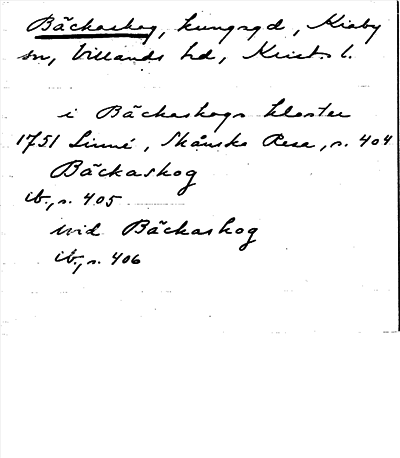 Bäckaskog, kungsgd, Kiaby
sn, Villands hd, Krist. l.
i Bäckaskogs kloster
1751 Linné, Skånska Resa, s. 404
Bäckaskog
ib., s. 405
wid Bäckaskog
ib., s. 406